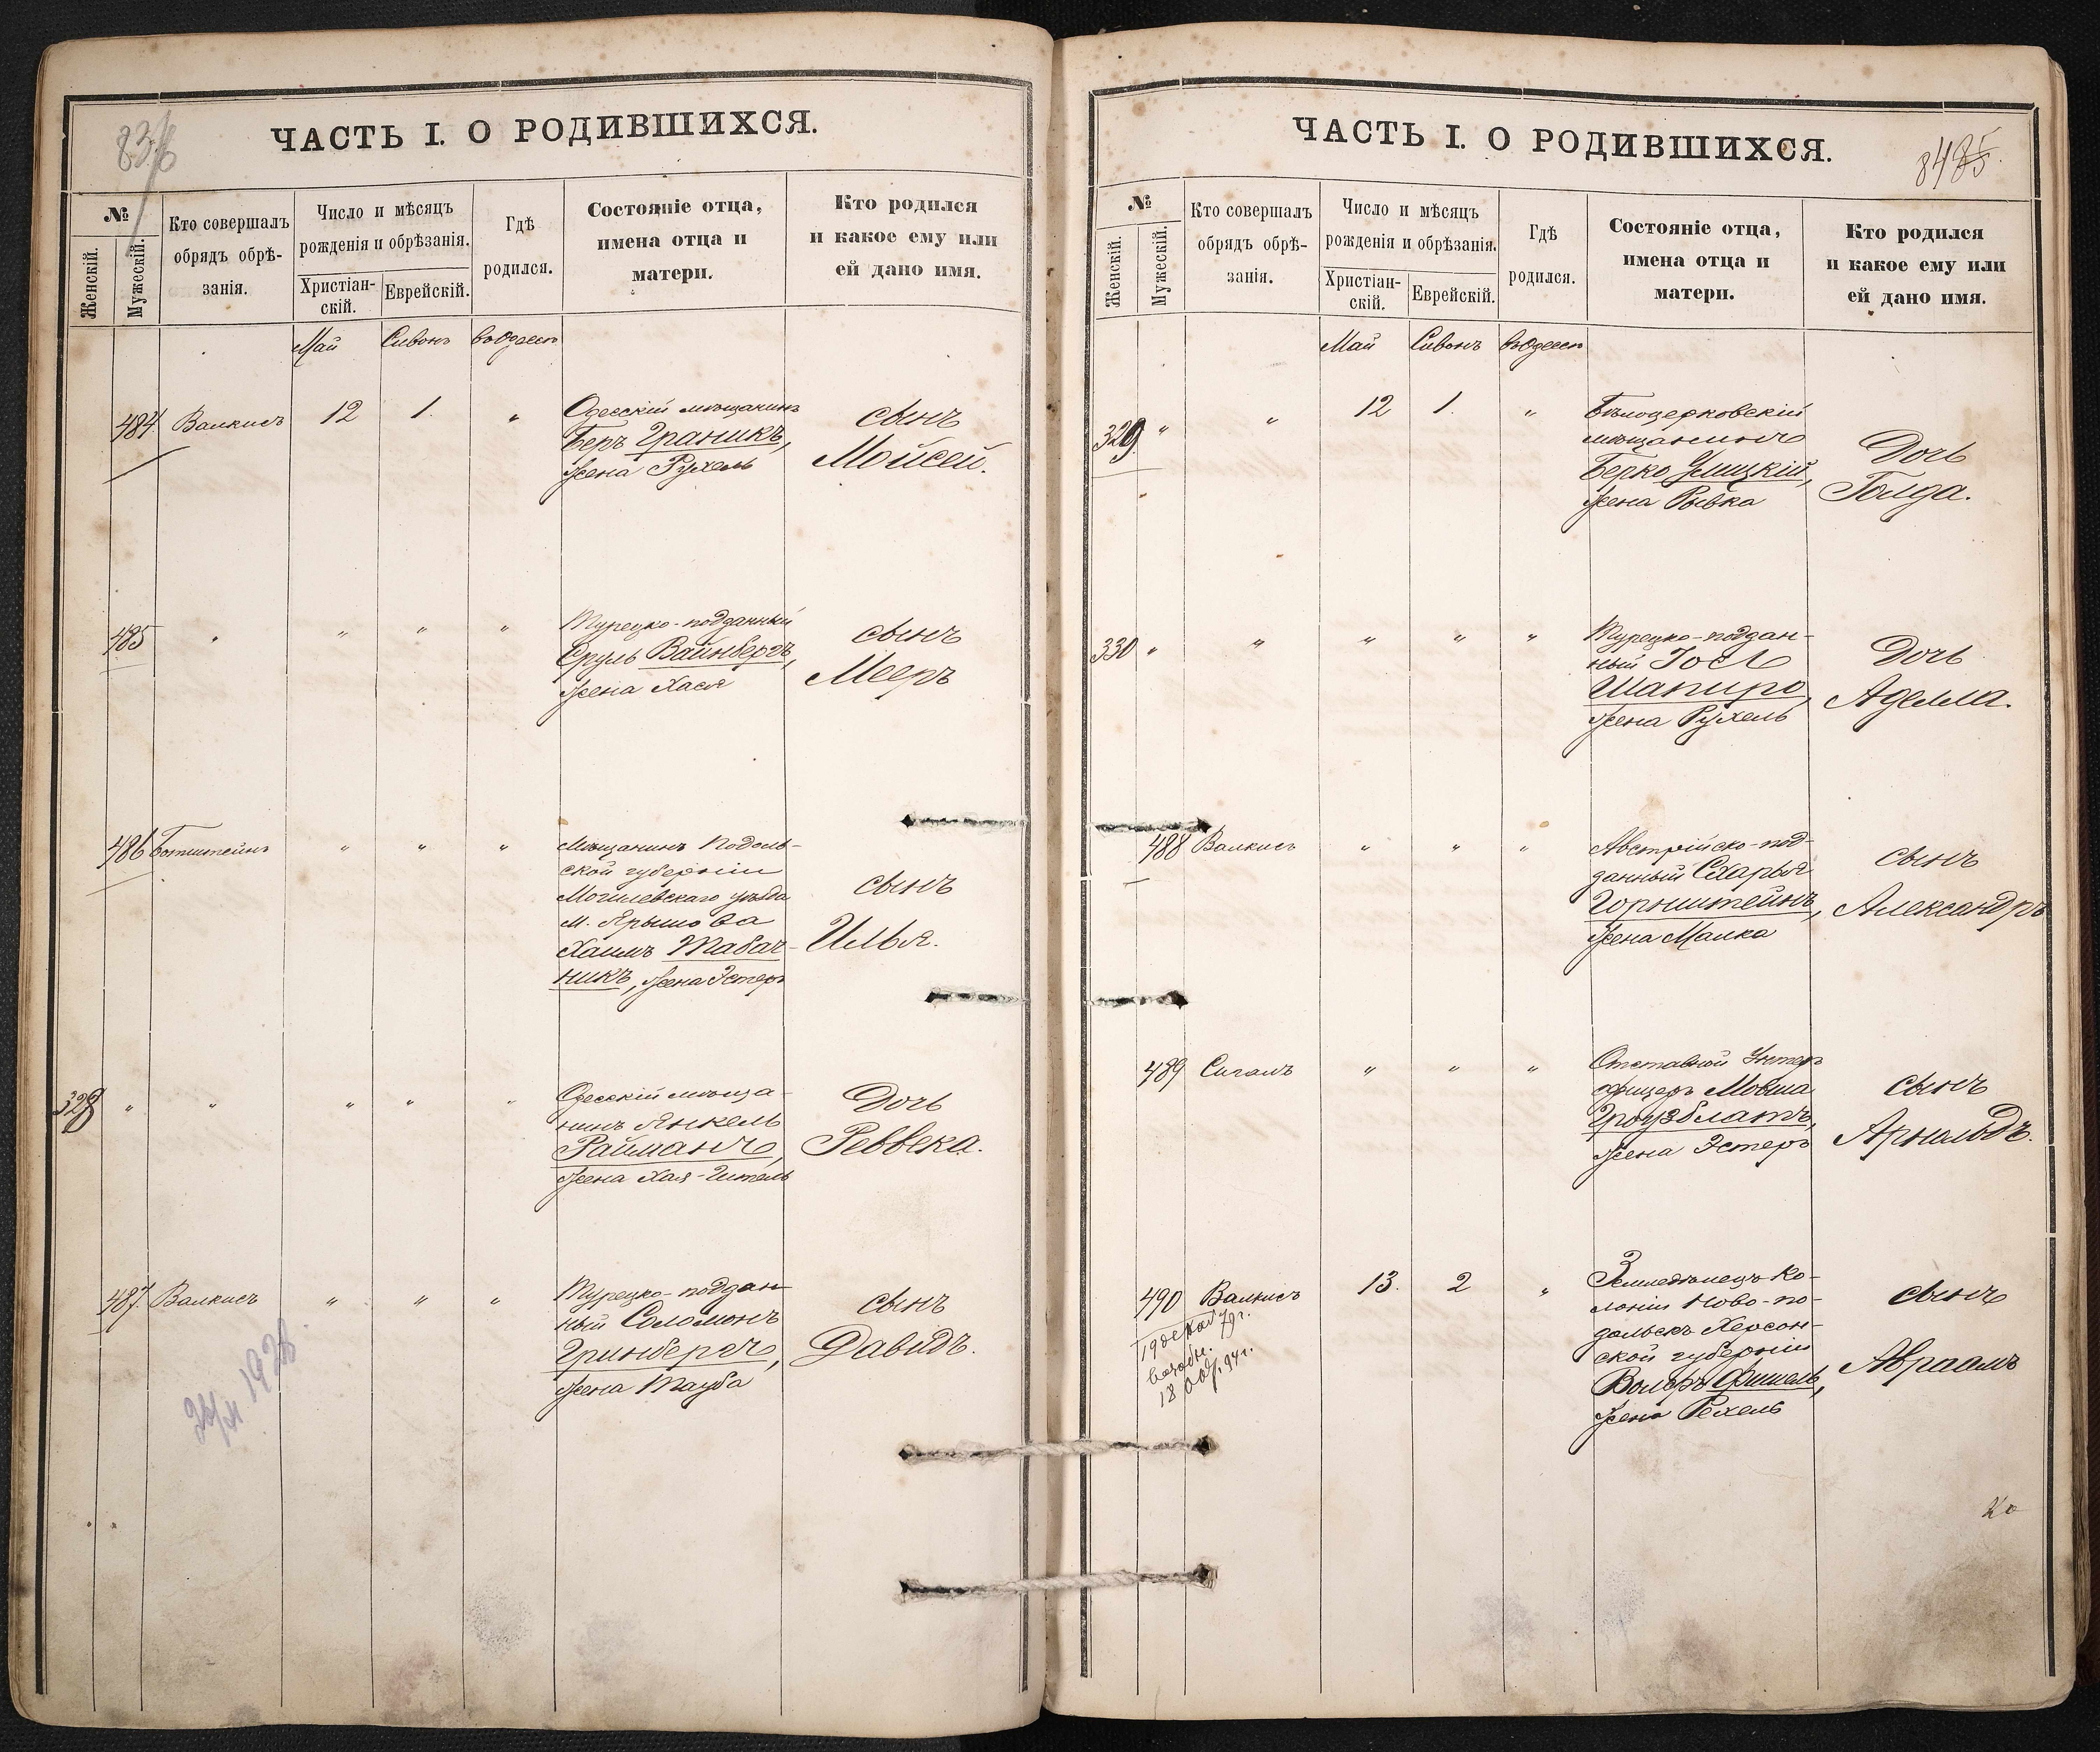 836
ЧАСТЬ I. О РОДИВШИХСЯ.
№
Женскій.
Мужескій.
Кто совершалъ
обрядъ обрѣ-
занія.
Число и мѣсяцъ
рожденія и обрѣзанія.
Христіан-
скій.
Еврейскій.
Гдѣ
родился.
Состояніе отца,
имена отца и
матери.
Кто родился
и какое ему или
ей дано имя.
Май Сивонъ въ Одессѣ
484 Валкисъ 12 1. " Одесскій мѣщанинъ
Беръ Граникъ,
жена Рухель
сынъ
Мойсей.
485 " " " " Турецко-подданный
Сруль Вайнбергъ,
жена Хася
сынъ
Мееръ
486 Ботштейнъ " " " Мѣщанинъ Подоль-
ской губерніи
Могилевскаго уѣзда
м. Ярышова
Хаимъ Табач-
никъ, жена Эстеръ
сынъ
Илья.
328 " " " " " Одесскій мѣща-
нинъ Янкель
Райманъ,
жена Хая-Гитель
Дочь
Реввека.
487. Валкисъ " " " Турецко-поддан
ный Соломонъ
Гринбергъ,
жена Тауба
сынъ
Давидъ.
ЧАСТЬ I. О РОДИВШИХСЯ.
№
Женскій.
Мужескій.
Кто совершалъ
обрядъ обрѣ-
занія.
Число и мѣсяцъ
рожденія и обрѣзанія.
Христіан-
скій.
Еврейскій.
Гдѣ
родился.
Состояніе отца,
имена отца и
матери.
Кто родился
и какое ему или
ей дано имя.
Май Сивонъ въ Одессѣ
329. " " 12 1. " Бѣлоцерковскій
мѣщанинъ
Берко Улицкій,
жена Рывка
Дочь
Голда.
330 " " " " " Турецко-поддан-
ный Іосл
Шапиро,
жена Рухель
Дочь
Аделла.
488 Валкисъ " " " Австрійско-под-
данный Схарья
Горнштейнъ,
жена Малка
сынъ
Александръ
489 Сигалъ " " " Отставной Унтеръ
офицеръ Мовша
Гроузблатъ,
жена Эстеръ
сынъ
Арнольдъ.
490 Валкисъ 13. 2 " Земледѣлецъ Ко-
лоніи Ново-По-
дольскъ Херсон-
ской губерніи
Волфъ Фишель,
жена Рехель
сынъ
Авраамъ